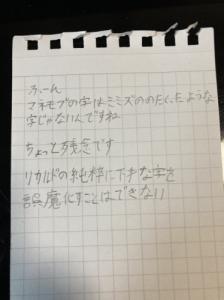 ふーん
マネモブの字はミミズののたくったような
字じゃないんですね
ちょっと残念です
リカルドの純粋に下手な字を
誤魔化すことはできない